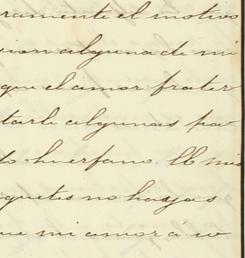 ramente el motivo
cion alguna de mi
que el amor frater
tarle algunas pa
lo huerfano. Ll mis
quetes no hayas
ue mi amor á su